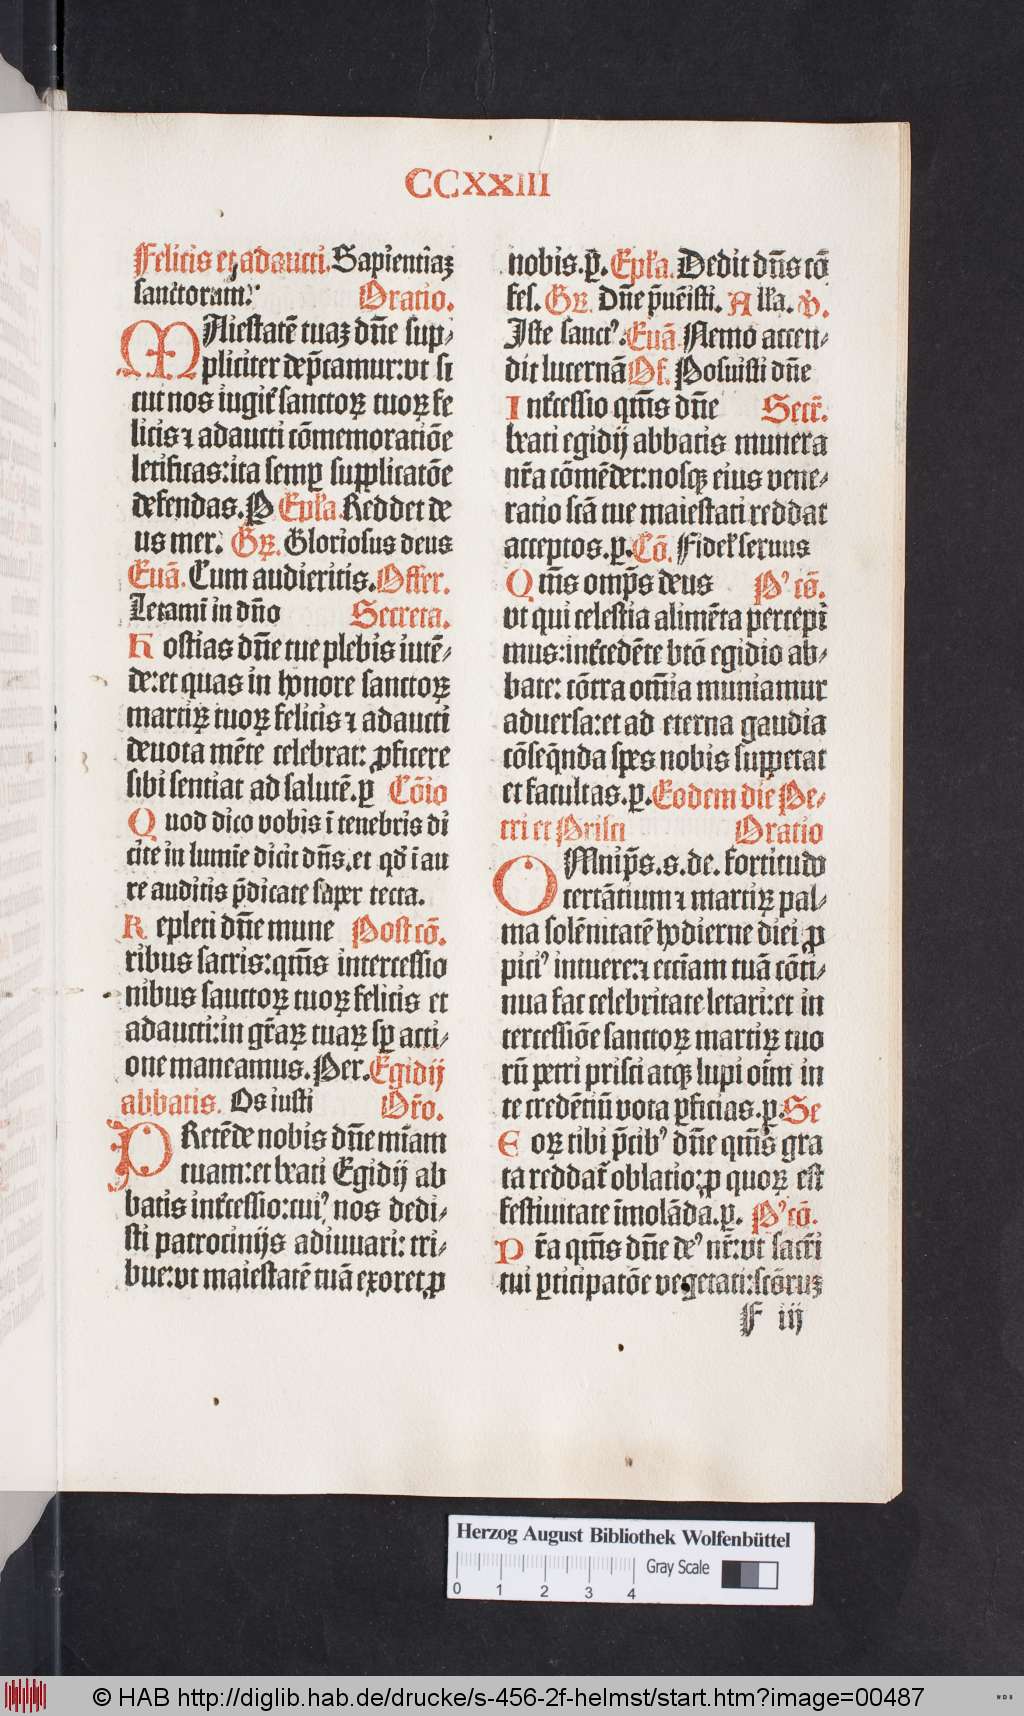 CCXXIII
Felicis et adaucti. Sapientiaꝫ
sanctorum: Oratio.
MAiestatē tuaꝫ dn̄e sup-
pliciter dep̄camur: vt si
cut nos iugit̄ sanctoꝝ tuoꝝ fe
licis ⁊ adaucti cōmemoratiōe
letificas: ita semꝑ supplicatōe
defendas. P Epl̄a. Reddet de
us mer. Gꝝ. Gloriosus deus
Euā. Cum audieritis. Offer.
Letamī in dn̄o Secreta.
Hostias dn̄e tue plebis intē-
de: et quas in honore sanctoꝝ
martiꝝ tuoꝝ felicis ⁊ adaucti
deuota mēte celebrat: ꝓficere
sibi sentiat ad salutē. ꝑ Cōio
Quod dico vobis ī tenebris di
cite in lumīe dicit dn̄s. et qd̄ ī au
re auditis p̄dicate super tecta.
Repleti dn̄e mune Post cō.
ribus sacris: qm̄s intercessio
nibus sanctoꝝ tuoꝝ felicis et
adaucti: in gr̄aꝝ tuaꝝ sꝑ acti-
one maneamus. Per. Egidij
abbatis. Os iusti Or̄o.
PRetēde nobis dn̄e miam
tuam: et beati Egidij ab
batis int̄cessio: cuiꝰ nos dedi-
sti patrocinijs adiuuari: tri-
bue: vt maiestatē tuā exoret ꝓ
nobis. ꝑ. Epl̄a. Dedit dn̄s cō
fes. Gꝝ. Dn̄e p̄uēisti. Alla. v̄.
Iste sanctꝰ. Euā. Nemo accen-
dit lucernā Of. Posuisti dn̄e
Int̄cessio qm̄s dn̄e Secr̄.
beati egidij abbatis munera
nr̄a cōmēdet: nosqꝫ eius vene-
ratio scā tue maiestati reddat
acceptos. ꝑ. Cō. Fidel̄ seruus
Qm̄s omp̄s deus Pꝰ cō.
vt qui celestia alimēta percepi
mus: int̄cedēte btō egidio ab-
bate: cōtra om̄ia muniamur
aduersa: et ad eterna gaudia
cōseq̄nda spes nobis suppetat
et facultas. ꝑ. Eodem die Pe-
tri et Prisci Oratio
OMnip̄s. s. de. fortitudo
certātium ⁊ martiꝝ pal-
ma solēnitatē hodierne diei ꝓ
piciꝰ intuere: ⁊ ecc̄iam tuā cōti-
nua fac celebritate letari: et in
tercessiōe sanctoꝝ martiꝝ tuo
rū petri prisci atqꝫ lupi oīm in
te credētiū vota ꝑficias. ꝑ. Se
Eoꝝ tibi p̄cibꝰ dn̄e qm̄s gra
ta reddat̄ oblatio: ꝓ quoꝝ est
festiuitate īmolāda. ꝑ. Pꝰ cō.
Pr̄a qm̄s dn̄e deꝰ nr̄: vt sacr̄i
tui ꝑticipatōe vegetati: scōruꝫ
F iij
Herzog August Bibliothek Wolfenbüttel
Gray Scale
0 1 2 3 4
© HAB http://diglib.hab.de/drucke/s-456-2f-helmst/start.htm?image=00487